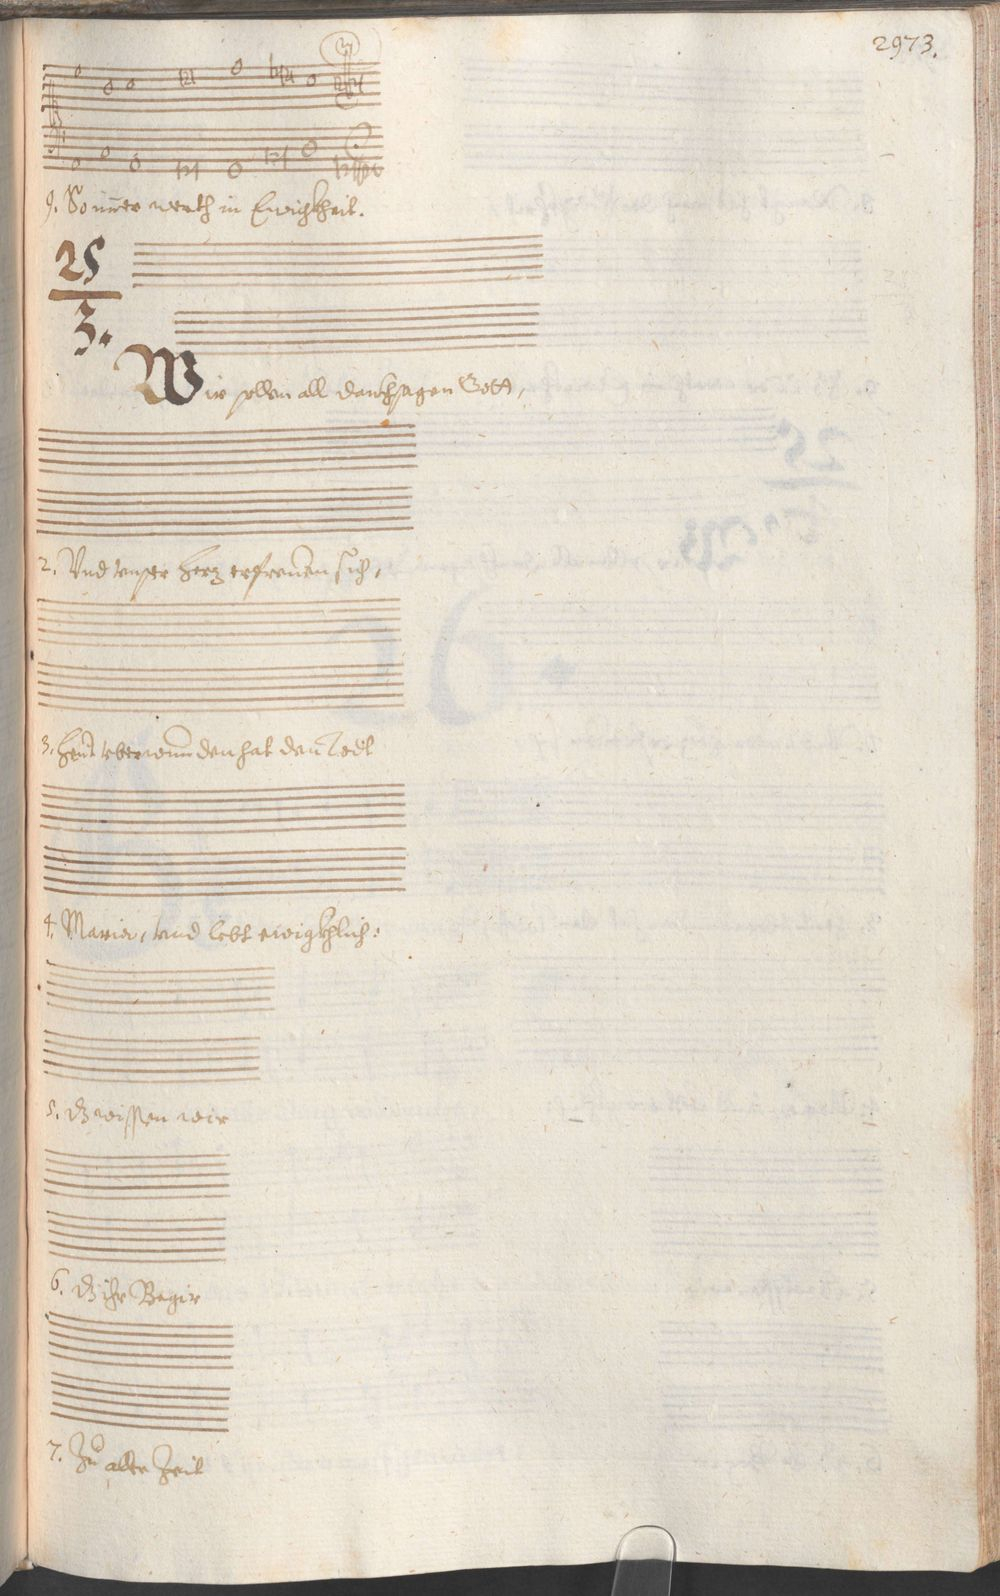 2973.
9. So immer werth in Ewichkheit.
25
3.
Wir sollen all danckhsagen Gott,
2. Vnd vnser herz erfrewen sich,
3. Heut vberwunden hat den Todt
4. Maria, vnd lebt ewigkhlich:
5. Dz wissen wir
6. Dz ihr Begir
7. Zu aller Zeit